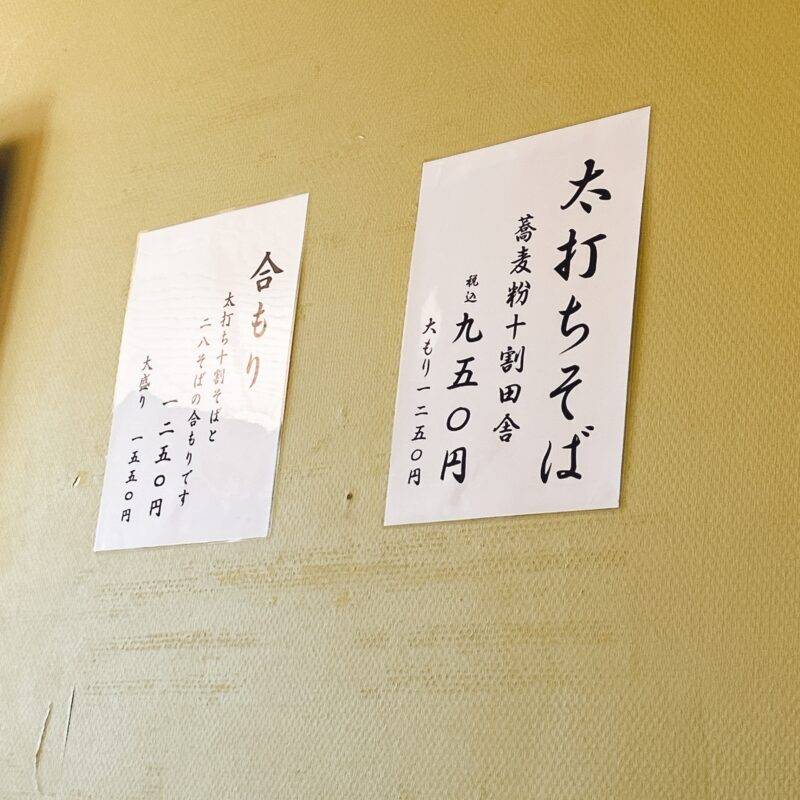 太打ちそば
蕎麦粉十割田舎
税込 九五〇円
大もり一二五〇円
合もり
太打ち十割そばと
二八そばの合もりです
一二五〇円
大盛り 一五五〇円